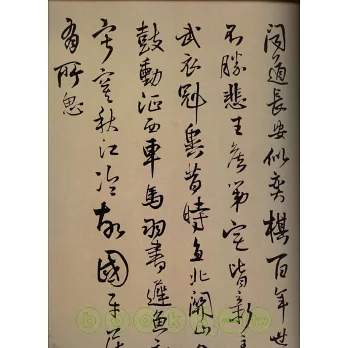 聞道長安似奕棋百年世
不勝悲王侯第宅皆新主
武衣冠異昔時直北關山
鼓動征西車馬羽書遲魚
寂寞秋江冷故國平居
有所思